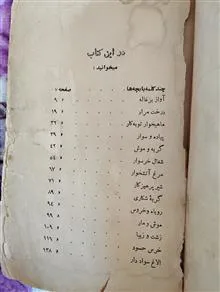 در این کتاب
میخوانید:
چند کلمه با بچه‌ها صفحه ۵
آواز بزغاله » ۹
درخت مراد » ۱۹
ماهیخوار توبه‌کار » ۲۷
پیاده و سوار » ۳۵
گربه و موش » ۴۲
شغال خرسوار » ۵۴
مرغ آتشخوار » ۷۱
شیر پرهیزکار » ۷۷
گربهٔ شکاری » ۸۹
روباه و خروس » ۹۴
موش و مار » ۹۹
زشت و زیبا » ۱۰۹
خرس حسود » ۱۱۶
الاغ سواددار » ۱۲۸